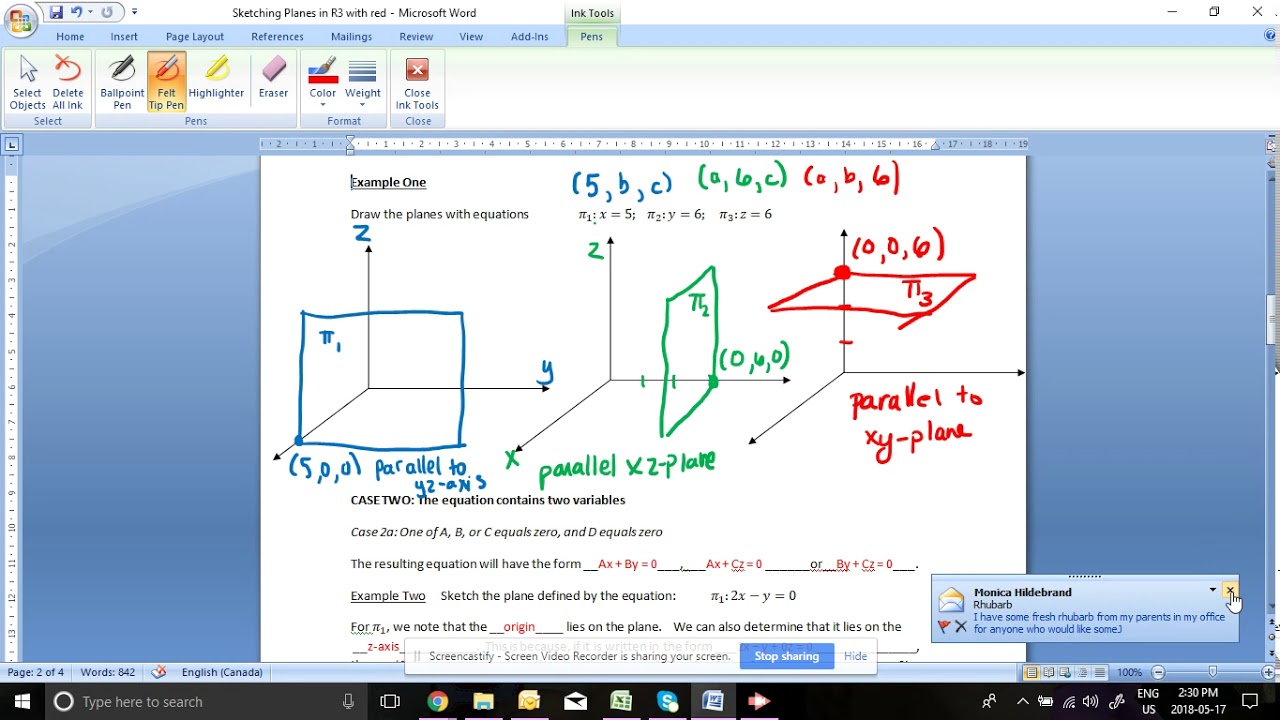 Sketching Planes in R3 with red - Microsoft Word
Ink Tools
Home Insert Page Layout References Mailings Review View Add-Ins Pens
Select Objects
Delete All Ink
Ballpoint Pen
Felt Tip Pen
Highlighter
Eraser
Color
Weight
Close Ink Tools
Select Pens Format Close
L
2 1 1 2 3 4 5 6 7 8 9 10 11 12 13 14 15 16 17 18 19
Example One
(5, b, c) (a, 6, c) (a, b, 6)
Draw the planes with equations π₁: x = 5; π₂: y = 6; π₃: z = 6
z
z
(0,0,6)
π₁
π₂
π₃
y
(0,6,0)
x
(5,0,0) parallel to
yz-axis
parallel xz-plane
parallel to
xy-plane
CASE TWO: The equation contains two variables
Case 2a: One of A, B, or C equals zero, and D equals zero
The resulting equation will have the form __Ax + By = 0___,___Ax + Cz = 0 ______or__By + Cz = 0___.
Example Two Sketch the plane defined by the equation: π₁: 2x − y = 0
For π₁, we note that the __origin____ lies on the plane. We can also determine that it lies on the
__z-axis
This is because, if it is written in the form
Monica Hildebrand
Rhubarb
I have some fresh rhubarb from my parents in my office
for anyone who would like some.J
Screencastify - Screen Video Recorder is sharing your screen. Stop sharing Hide
Page: 2 of 4 Words: 842 English (Canada) 100%
Type here to search
ENG
US
2:30 PM
2018-05-17